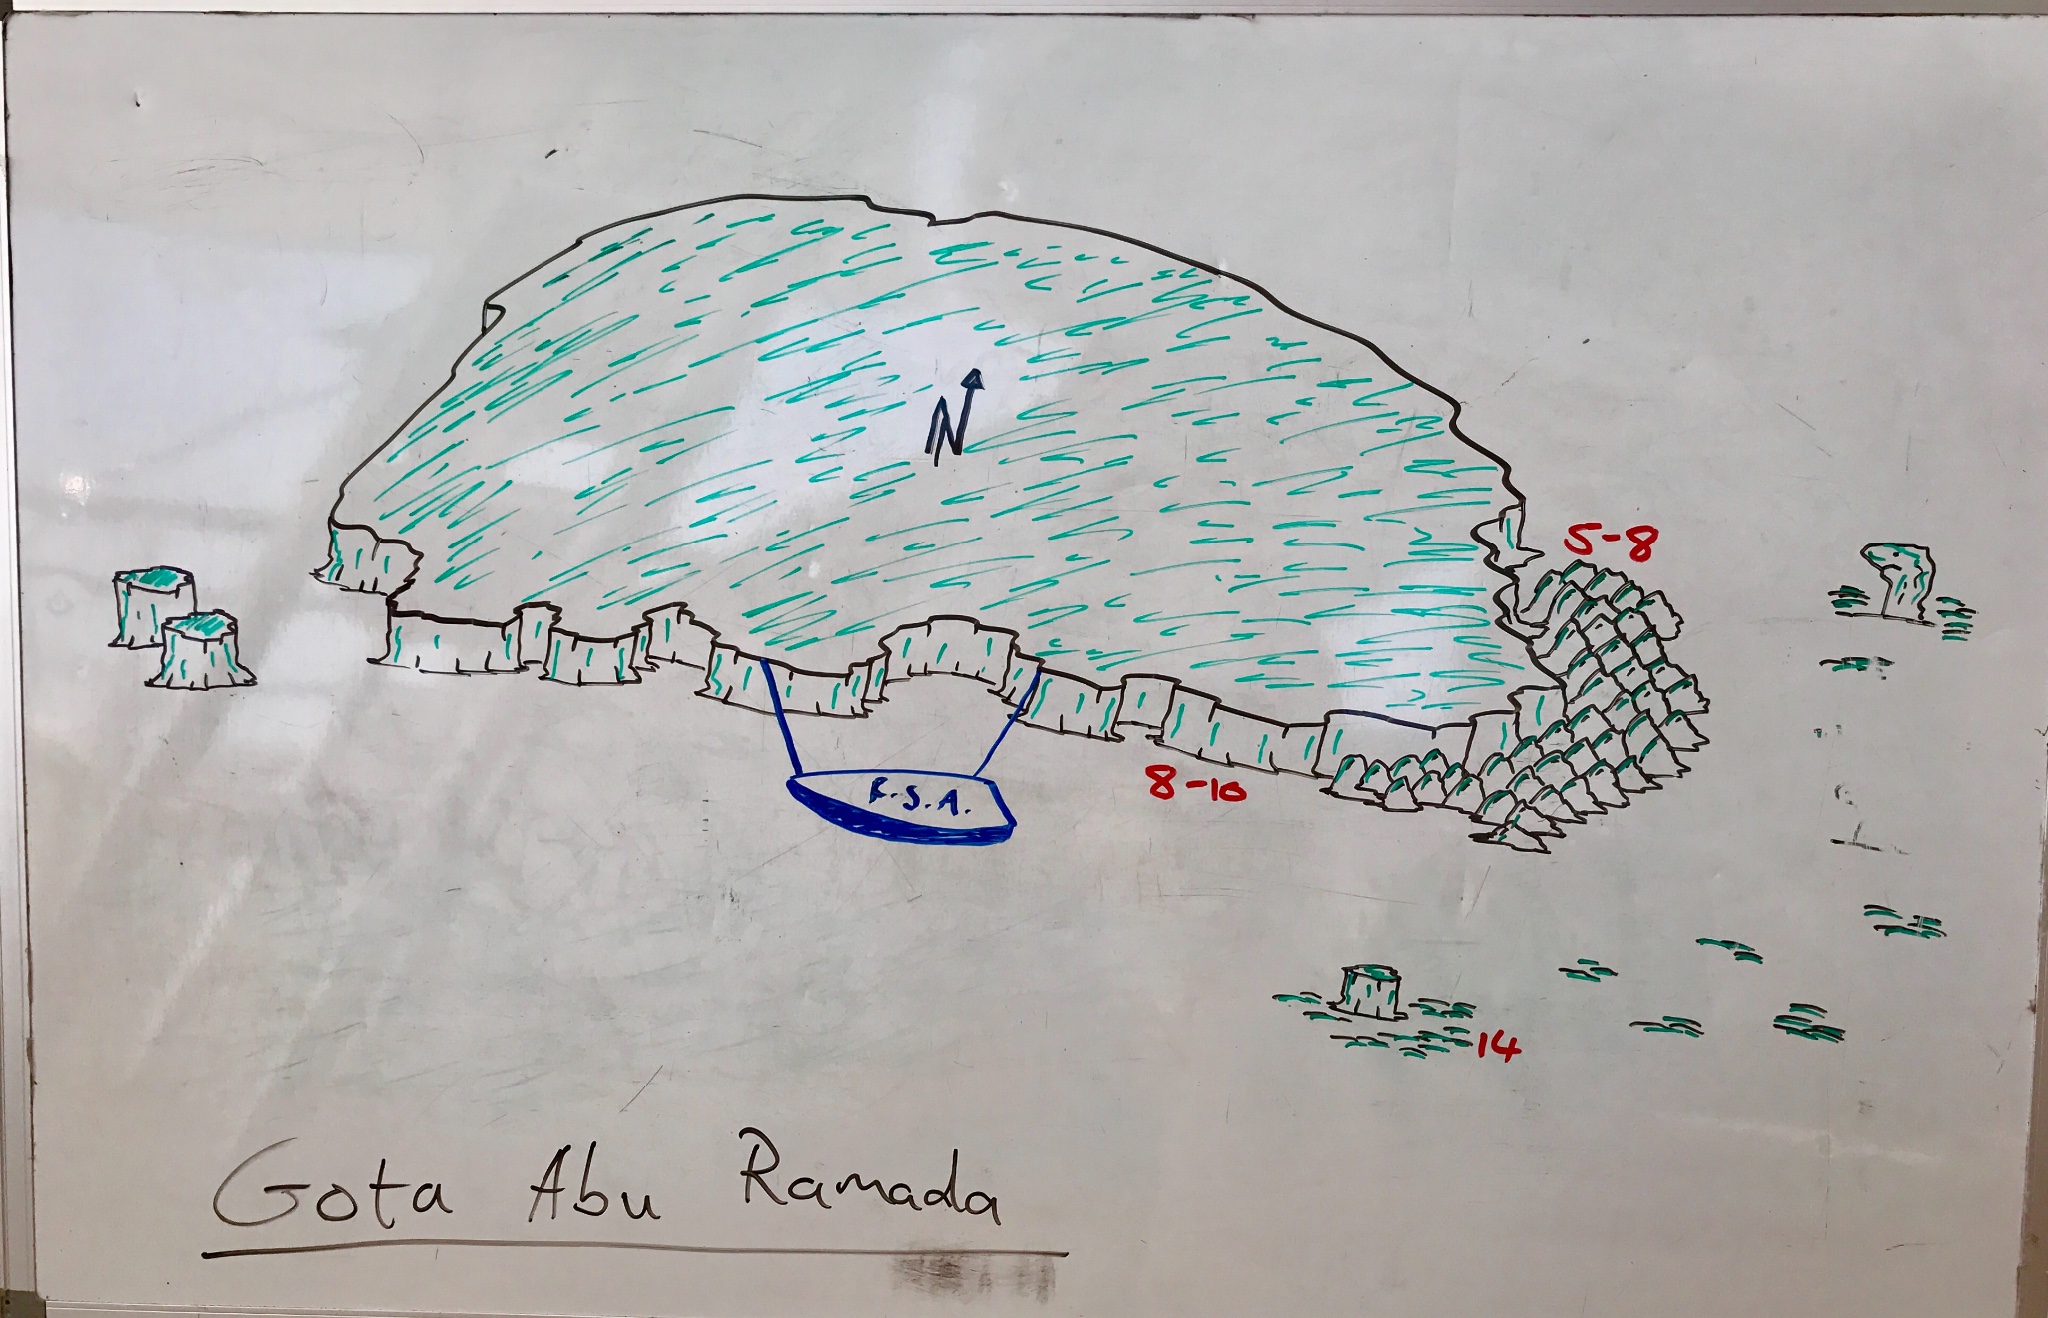 N
5-8
8-10
R.S.A.
14
Gota Abu Ramada